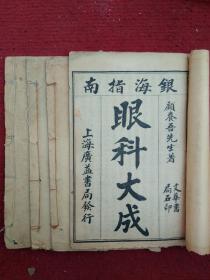 銀海指南
顧養吾先生著
文華書局石印
眼科大成
上海廣益書局發行